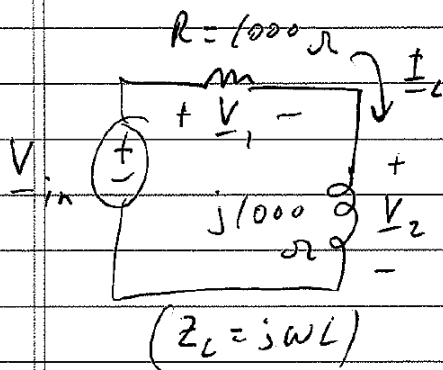 R = 1000 Ω
I_L
+ V_1 −
V_in
+
−
j1000
Ω
+
V_2
−
(Z_L = jωL)